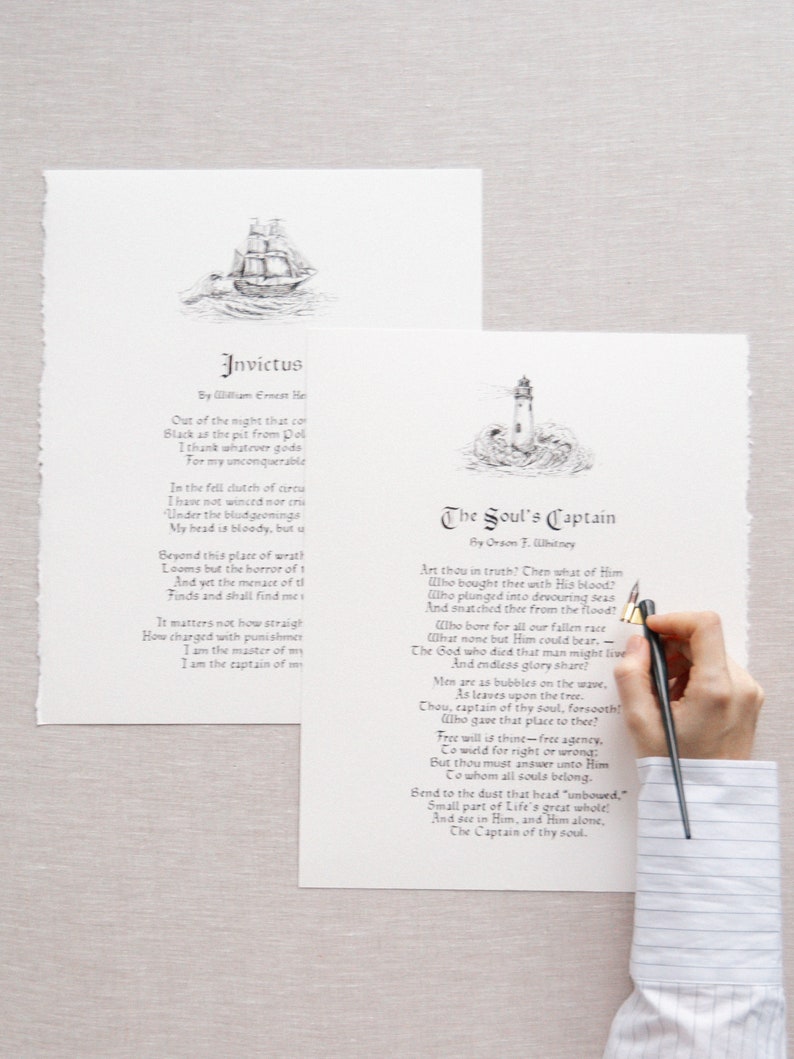 Invictus
By William Ernest He
Out of the night that co
Black as the pit from Pol
I thank whatever gods
For my unconquerable
In the fell clutch of circu
I have not winced nor cri
Under the bludgeonings
My head is bloody, but u
Beyond this place of wrath
Looms but the horror of t
And yet the menace of th
Finds and shall find me
It matters not how straigh
How charged with punishmen
I am the master of my
I am the captain of my
The Soul's Captain
By Orson F. Whitney
Art thou in truth? Then what of Him
Who bought thee with His blood?
Who plunged into devouring seas
And snatched thee from the flood?
Who bore for all our fallen race
What none but Him could bear, —
The God who died that man might live
And endless glory share?
Men are as bubbles on the wave,
As leaves upon the tree.
Thou, captain of thy soul, forsooth!
Who gave that place to thee?
Free will is thine—free agency,
To wield for right or wrong;
But thou must answer unto Him
To whom all souls belong.
Bend to the dust that head "unbowed,"
Small part of Life's great whole!
And see in Him, and Him alone,
The Captain of thy soul.